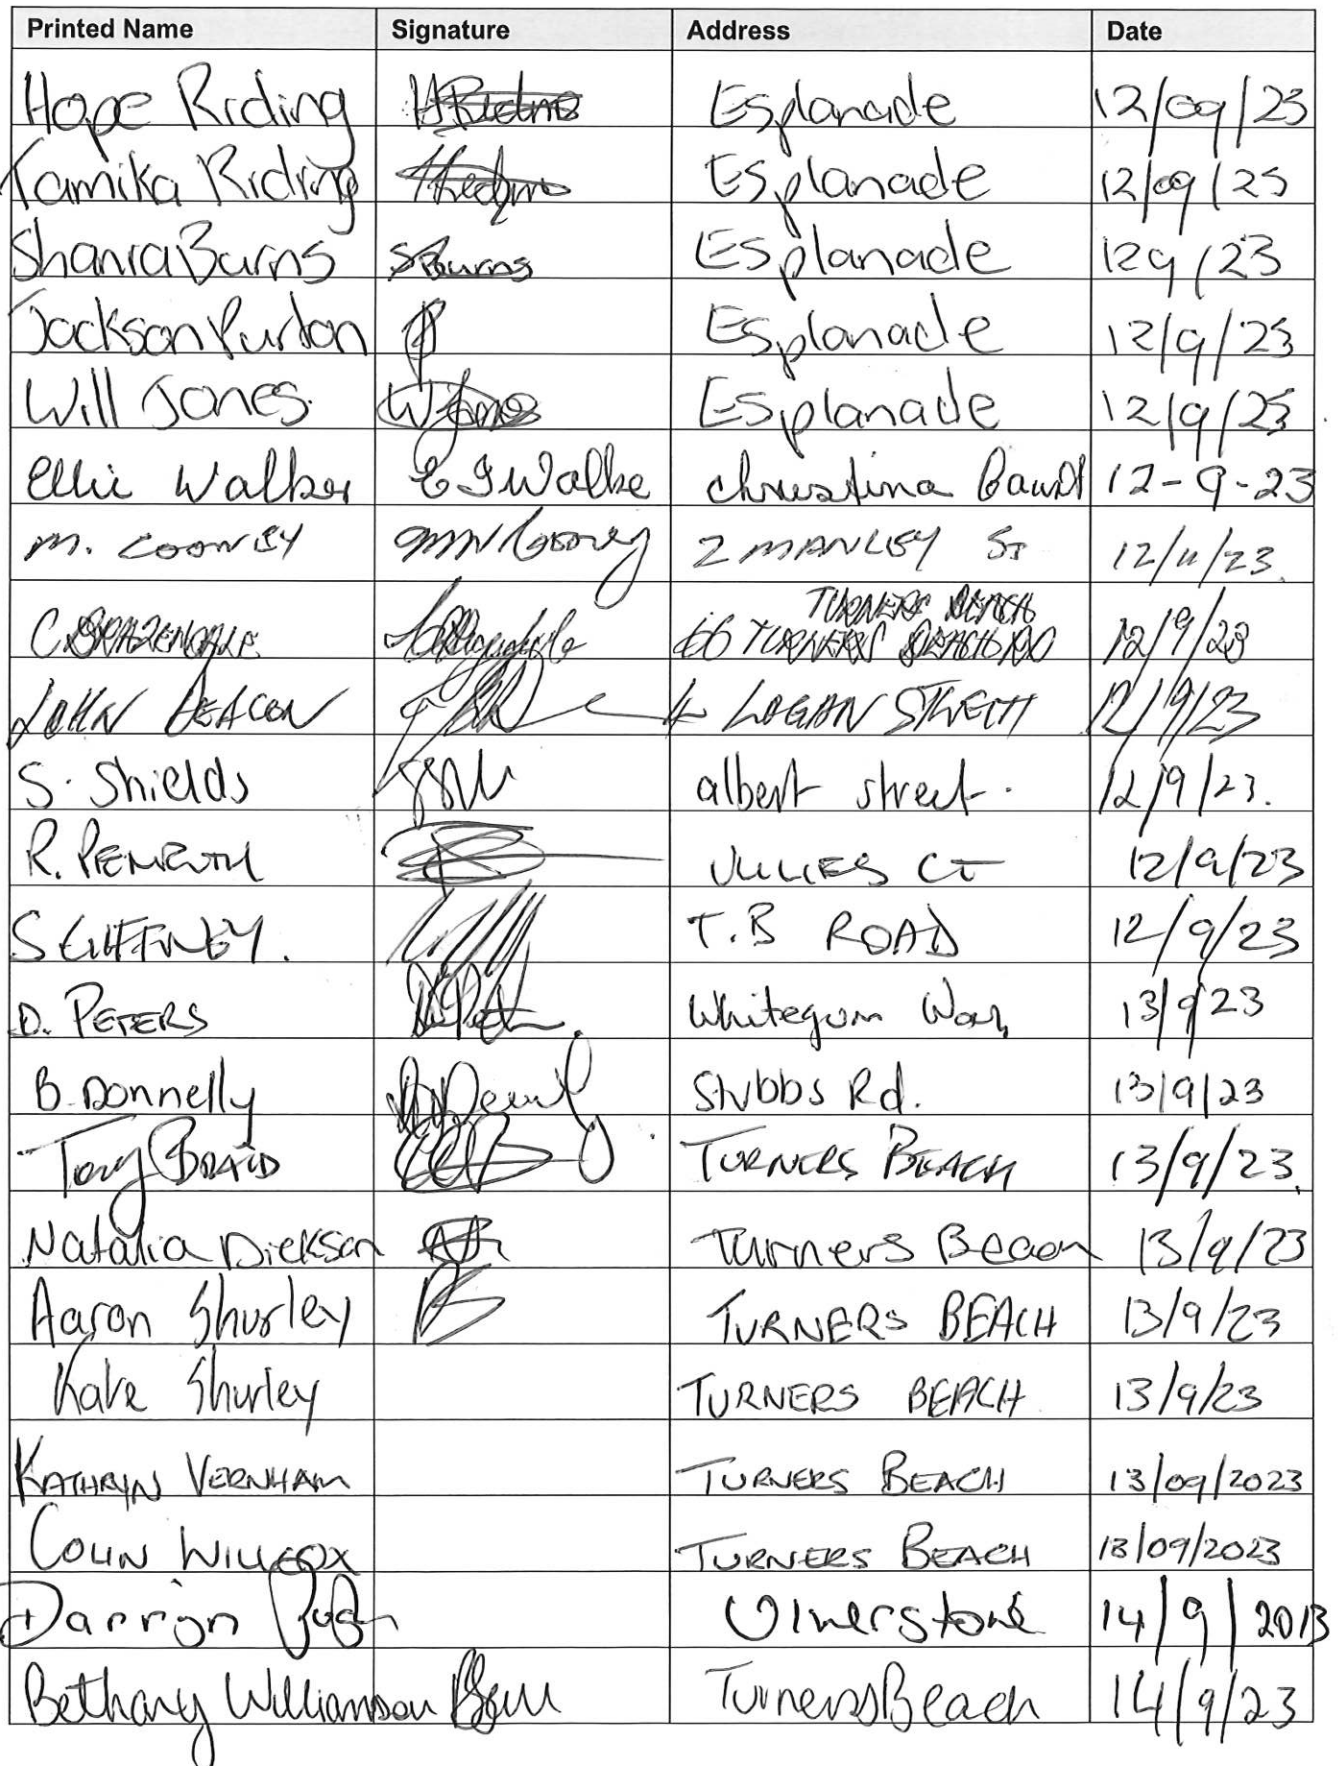 Printed Name Signature Address Date
Hope Riding Esplanade 12/09/23
Tamika Riding Esplanade 12/09/23
Shania Burns SBurns Esplanade 129/23
Jackson Purton Esplanade 12/9/23
Will Jones. WJones Esplanade 12/9/23
Ellie Walker E J Walke christina Court 12-9-23
M. COONEY 2 MANLEY ST 12/11/23.
TURNERS BEACH
C BRAZENDALE 66 TURNERS BEACH RD 12/9/23
JOHN DEACON 4 LOGAN STREET 12/9/23
S. Shields albert street. 12/9/23.
R. PENRUTH CT 12/9/23
S T.B ROAD 12/9/23
D. PETERS Whitegum Way 13/9/23
B. Donnelly Stubbs Rd. 13/9/23
Tony BRAID TURNERS BEACH 13/9/23
Natalia Dickson Turners Beach 13/9/23
Aaron Shurley TURNERS BEACH 13/9/23
Kate Shurley TURNERS BEACH 13/9/23
KATHRYN VERNHAM TURNERS BEACH 13/09/2023
COLIN WILLCOX TURNERS BEACH 13/09/2023
Darrion Ulverstone 14/9/2013
Bethany Williamson Turners Beach 14/9/23